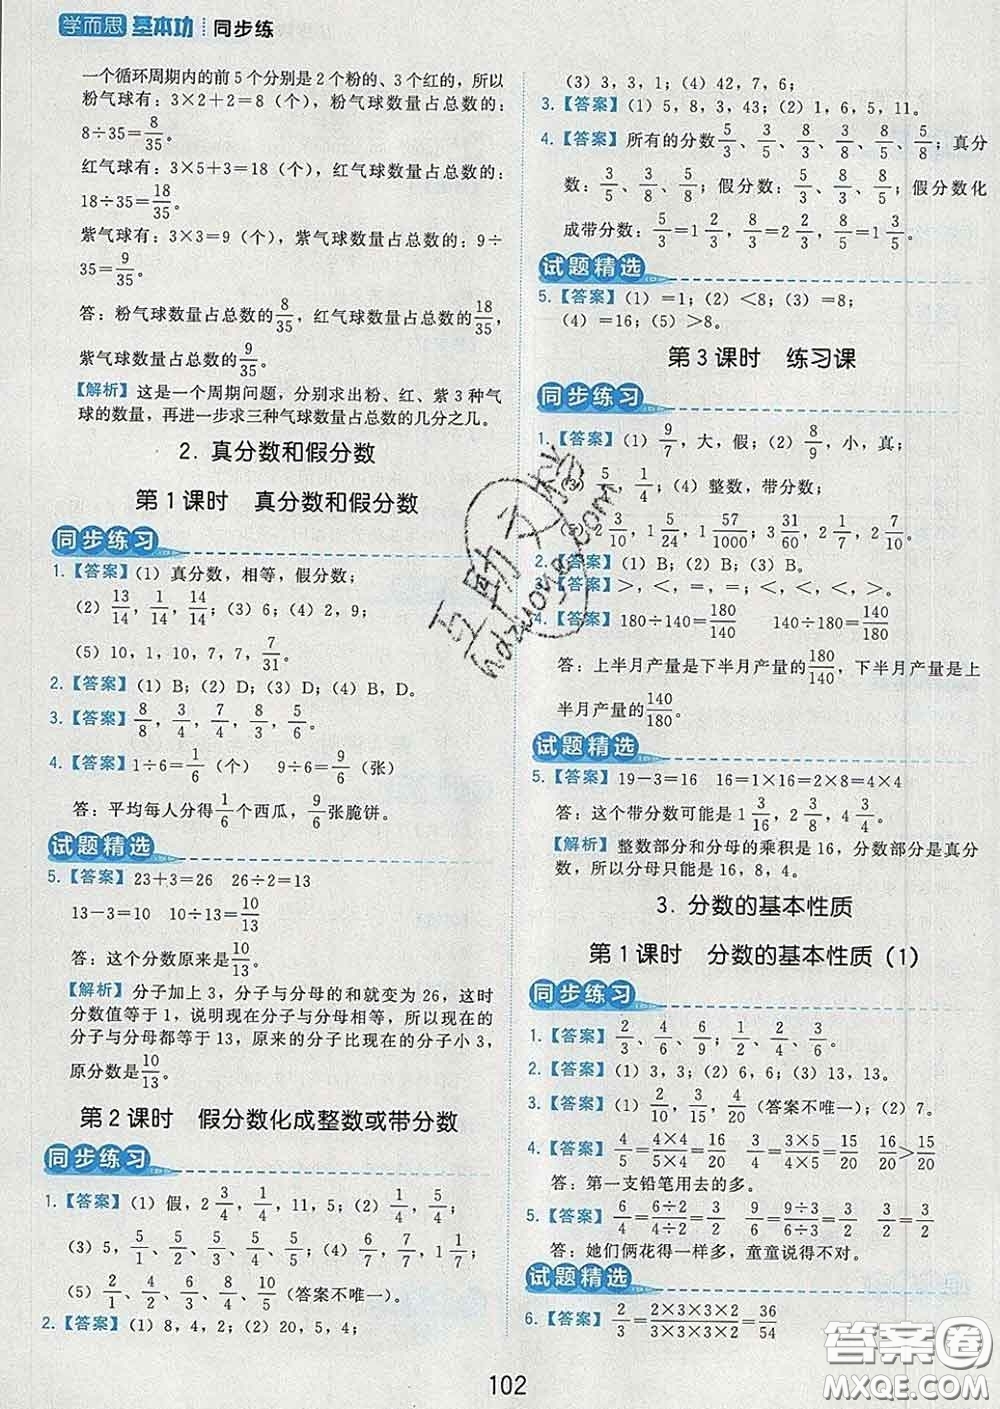 学而思 基本功 同步练
一个循环周期内的前5个分别是2个粉的、3个红的，所以
粉气球有：3×2+2=8（个），粉气球数量占总数的：
8÷35=8/35。
红气球有：3×5+3=18（个），红气球数量占总数的：
18÷35=18/35。
紫气球有：3×3=9（个），紫气球数量占总数的：9÷
35=9/35。
答：粉气球数量占总数的8/35，红气球数量占总数的18/35，
紫气球数量占总数的9/35。
【解析】这是一个周期问题，分别求出粉、红、紫3种气
球的数量，再进一步求三种气球数量占总数的几分之几。
2. 真分数和假分数
第1课时 真分数和假分数
同步练习
1.【答案】（1）真分数，相等，假分数；
（2）13/14、1/14、14/14；（3）6；（4）2，9；
（5）10，1，10，7，7，7/31。
2.【答案】（1）B；（2）D；（3）D；（4）B，D。
3.【答案】8/8、3/4、7/7、8/3、5/6。
4.【答案】1÷6=1/6（个） 9÷6=9/6（张）
答：平均每人分得1/6个西瓜，9/6张脆饼。
试题精选
5.【答案】23+3=26 26÷2=13
13-3=10 10÷13=10/13
答：这个分数原来是10/13。
【解析】分子加上3，分子与分母的和就变为26，这时
分数值等于1，说明现在分子与分母相等，所以现在的
分子与分母都等于13，原来的分子比现在的分子小3，
原分数是10/13。
第2课时 假分数化成整数或带分数
同步练习
1.【答案】（1）假，2 3/4，1/4，11，5；（2）1/4，5/4；
（3）5，5/1、5/2、5/3、5/4、5/5；（4）6/7，7/7，1 1/7；
（5）2/2、4/1、6/2、8/4、5/2（答案不唯一）。
2.【答案】（1）8，4，2；（2）20，5，4；
（3）3，3，1；（4）42，7，6；
3.【答案】（1）5，8，3，43；（2）1，6，5，11。
4.【答案】所有的分数5/3、3/5、3/8、8/3、8/5、5/8；真分
数：3/5、3/8、5/8；假分数：5/3、8/3、8/5；假分数化
成带分数：5/3=1 2/3，8/3=2 2/3，8/5=1 3/5。
试题精选
5.【答案】（1）=1；（2）<8；（3）=8；
（4）=16；（5）>8。
第3课时 练习课
同步练习
1.【答案】（1）9/7，大，假；（2）8/9，小，真；
（3）5/4，1/4；（4）整数，带分数；
（5）2 7/10，1 5/24，1 57/1000，3 31/60，2 2/7，2 7/10。
2.【答案】（1）B；（2）B；（3）B。
3.【答案】>，<，=，>，<，<，<，>。
4.【答案】180÷140=180/140 140÷180=140/180
答：上半月产量是下半月产量的180/140，下半月产量是上
半月产量的140/180。
试题精选
5.【答案】19-3=16 16=1×16=2×8=4×4
答：这个带分数可能是1 3/16，2 3/8，4 3/4。
【解析】整数部分和分母的乘积是16，分数部分是真分
数，所以分母只能是16，8，4。
3. 分数的基本性质
第1课时 分数的基本性质（1）
同步练习
1.【答案】2/3、4/6、6/9；1/2、2/4、3/6。
2.【答案】（1）3，3；（2）6，6；（3）13，13。
3.【答案】（1）2/10，3/15，4/20（答案不唯一）；（2）7。
4.【答案】4/5=4×4/5×4=16/20 3/4=3×5/4×5=15/20 16/20>15/20
答：第一支铅笔用去的多。
5.【答案】6/4=6÷2/4÷2=3/2 9/6=9÷3/6÷3=3/2 3/2=3/2
答：她们俩花得一样多，童童说得不对。
试题精选
6.【答案】2/3=2×3×3×2/3×3×3×2=36/54
102
互助文学
hdzuoye.com
答案圈
MXQE.COM